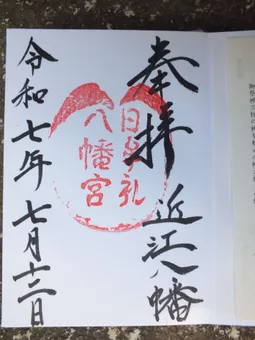 奉拝
近江八幡
日牟礼
八幡宮
令和七年七月十三日